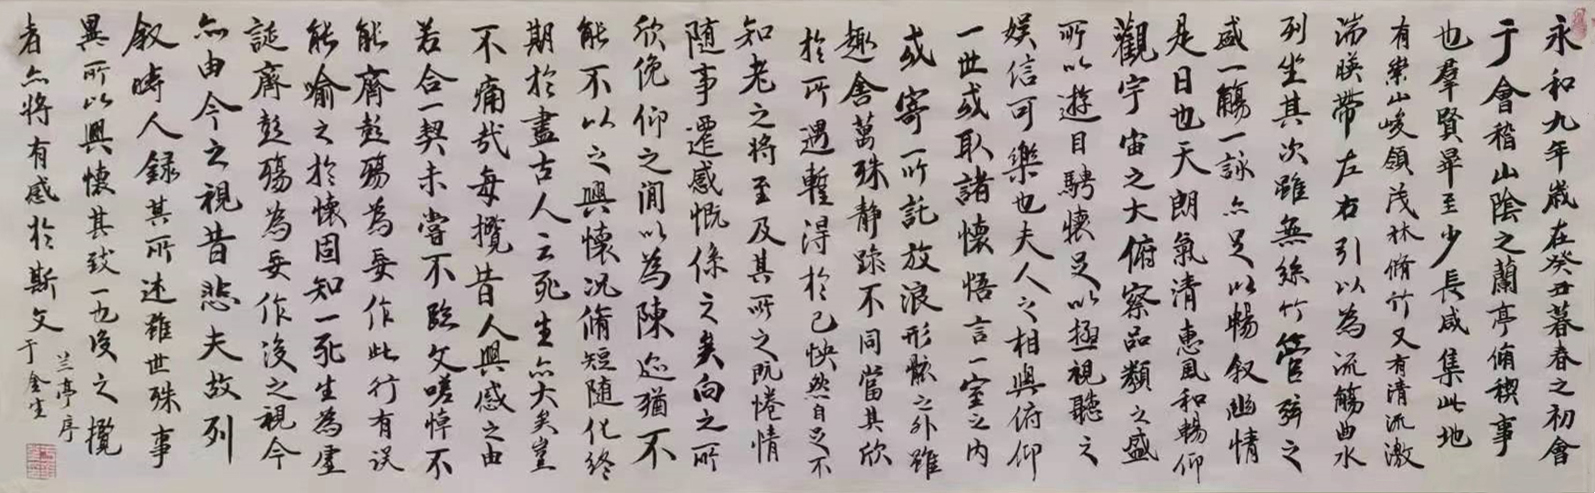 永和九年歲在癸丑暮春之初會
于會稽山陰之蘭亭脩稧事
也羣賢畢至少長咸集此地
有崇山峻領茂林脩竹又有清流激
湍暎帶左右引以為流觴曲水
列坐其次雖無絲竹管弦之
盛一觴一詠亦足以暢叙幽情
是日也天朗氣清惠風和暢仰
觀宇宙之大俯察品類之盛
所以遊目騁懷足以極視聽之
娛信可樂也夫人之相與俯仰
一世或取諸懷悟言一室之內
或寄所託放浪形骸之外雖
趣舍萬殊靜躁不同當其欣
於所遇暫得於己怏然自足不
知老之將至及其所之既惓情
隨事遷感慨係之矣向之所
欣俛仰之閒以為陳迹猶不
能不以之興懷況脩短隨化終
期於盡古人云死生亦大矣豈
不痛哉每攬昔人興感之由
若合一契未嘗不臨文嗟悼不
能齊彭殤為妄作此行有誤
能喻之於懷固知一死生為虛
誕齊彭殤為妄作後之視今
亦由今之視昔悲夫故列
叙時人錄其所述雖世殊事
異所以興懷其致一也後之攬
者亦將有感於斯文
兰亭序
于金生